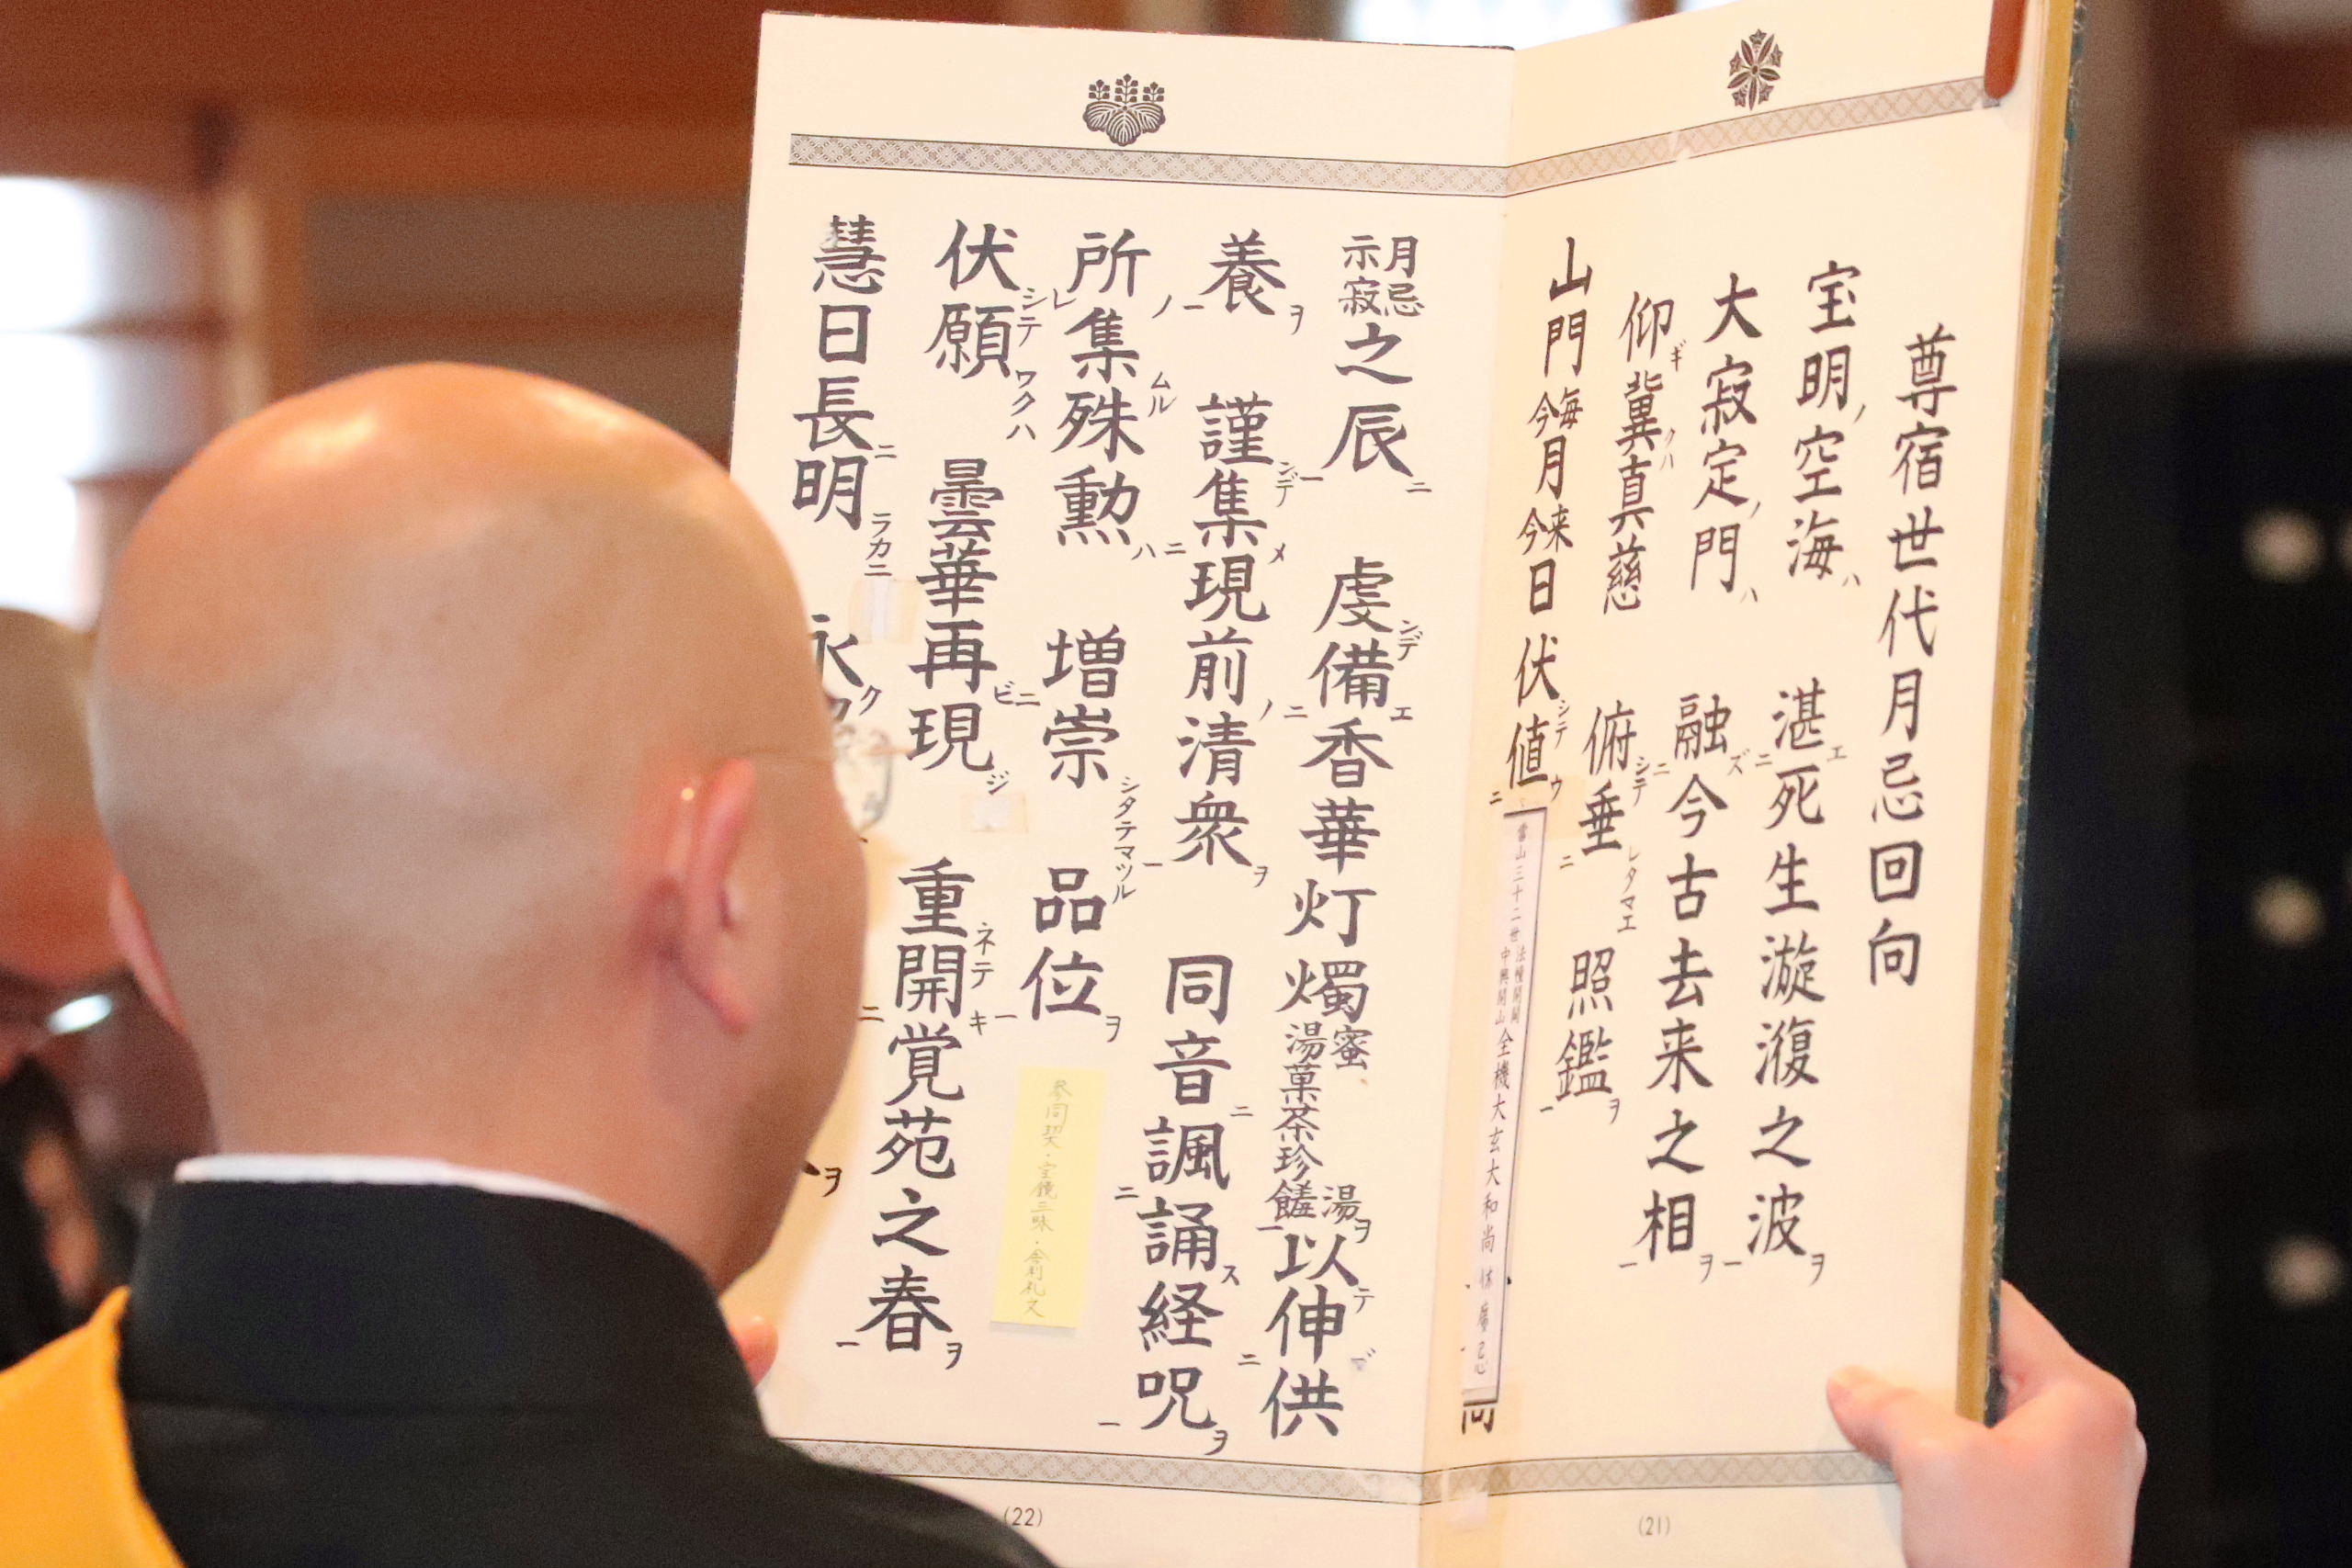 尊宿世代月忌回向
宝明ノ空海ハ 湛エ二死生漩澓之波ヲ一
大寂定ノ門ハ 融ズ二今古去来之相ヲ一
仰ギ冀クハ真慈 俯シテ二垂二レタマエ 照鑑ヲ一
山門 今毎月今来日伏シテ値ウ二
當山三十二世 法幢開闢 中興開山 全機大玄大和尚
月忌示寂之辰ニ一 虔ンデ備エ香華灯燭蜜湯菓茶珍饈湯ヲ一以テ伸ブ二供
養ヲ 謹ンデ集メ二現前ノ清衆ヲ一 同音ニ諷二誦ス経呪ヲ一
所ノ一レ集ムル殊勲ハ 増二崇シタテマツル 品位ヲ一
伏シテ願ワクハ 曇華再ビ二現ジ 重ネテ開キ二覚苑之春ヲ一
慧日長ニ明ラカニ 永ク
参同契・宝鏡三昧・舎利礼文
(22)
(21)